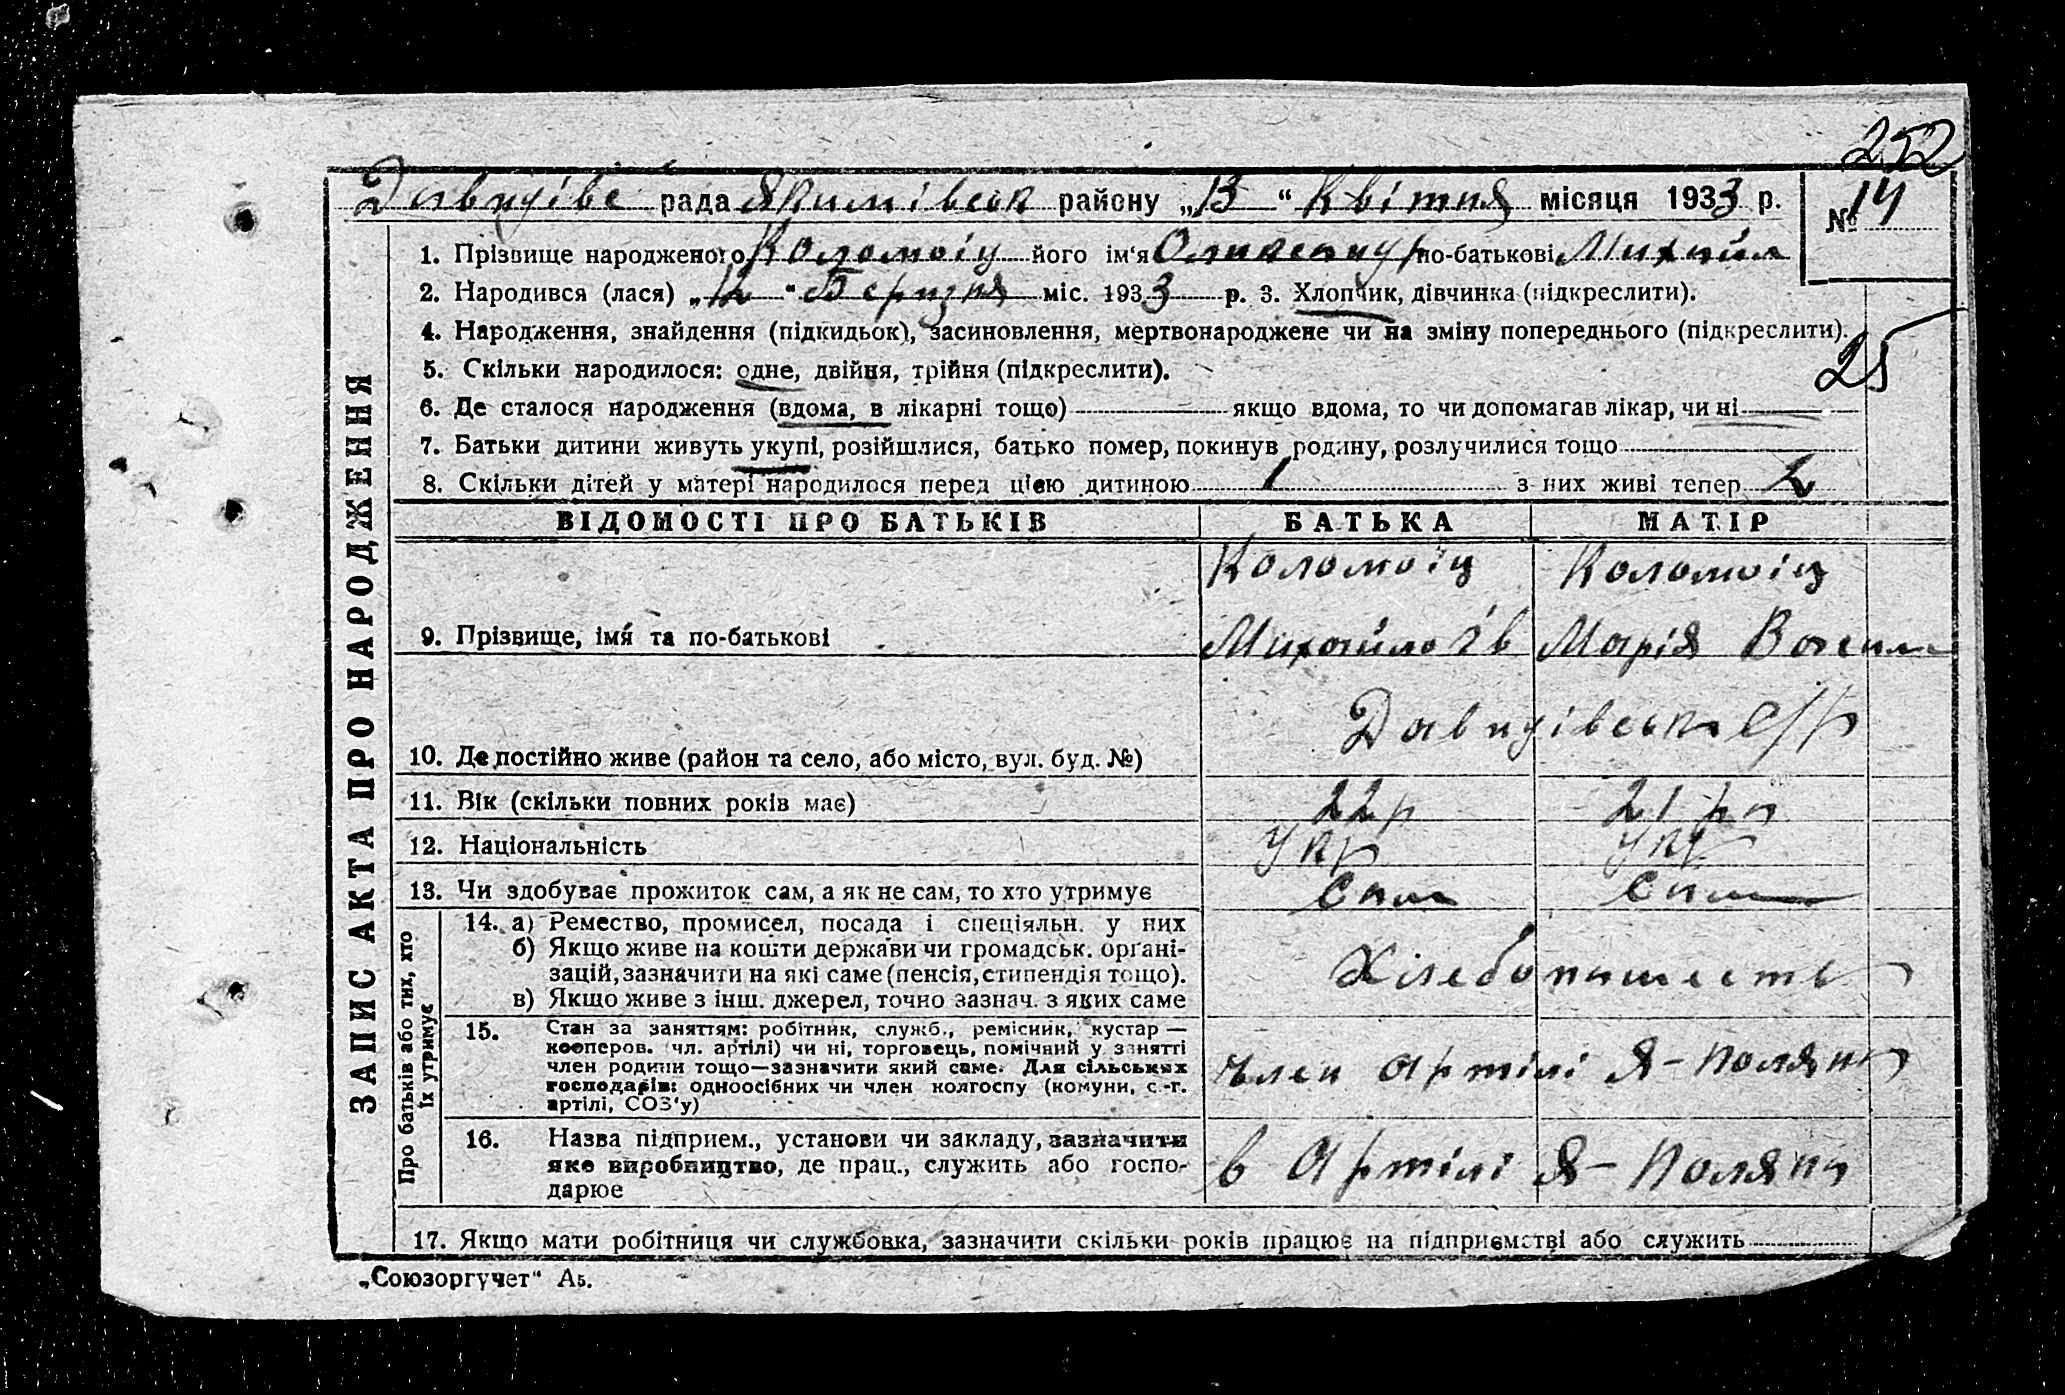 252
Давидівс рада Якимівськ району „13“ Квітня місяця 1933 р. № 14
1. Прізвище народженого Коломоїц його ім'я Олександр по-батькові Михайл
2. Народився (лася) „12“ Березня міс. 1933 р. 3. Хлопчик, дівчинка (підкреслити).
4. Народження, знайдення (підкидьок), засиновлення, мертвонароджене чи на зміну попереднього (підкреслити).
25
5. Скільки народилося: одне, двійня, трійня (підкреслити).
6. Де сталося народження (вдома, в лікарні тощо) якщо вдома, то чи допомагав лікар, чи ні
7. Батьки дитини живуть укупі, розійшлися, батько помер, покинув родину, розлучилися тощо
8. Скільки дітей у матері народилося перед цією дитиною 1 з них живі тепер 2
ЗАПИС АКТА ПРО НАРОДЖЕННЯ
ВІДОМОСТІ ПРО БАТЬКІВ БАТЬКА МАТІР
Коломоїц Коломоїц
9. Прізвище, імя та по-батькові Михайло Марія Васил
Давидівська с/р
10. Де постійно живе (район та село, або місто, вул. буд. №)
11. Вік (скільки повних років має) 22 р 21 р
12. Національність Укр Укр
13. Чи здобуває прожиток сам, а як не сам, то хто утримує Сам Сам
Про батьків або тих, хто їх утримує
14. а) Ремество, промисел, посада і спеціяльн. у них
б) Якщо живе на кошти держави чи громадськ. органі-
зацій, зазначити на які саме (пенсія, стипендія тощо).
в) Якщо живе з інш. джерел, точно зазнач. з яких саме
Хлебопашеств
15. Стан за заняттям: робітник, служб., ремісник, кустар —
кооперов. (чл. артілі) чи ні, торговець, помічний у занятті
член родини тощо—зазначити який саме. Для сільських
господарів: одноосібних чи член колгоспу (комуни, с.-г.
артілі, СОЗ'у)
член Артілі Я-Поляна
16. Назва підприєм., установи чи закладу, зазначити
яке виробництво, де прац., служить або госпо-
дарює
в Артілі Я-Поляна
17. Якщо мати робітниця чи службовка, зазначити скільки років працює на підприємстві або служить
„Союзоргучет“ А5.